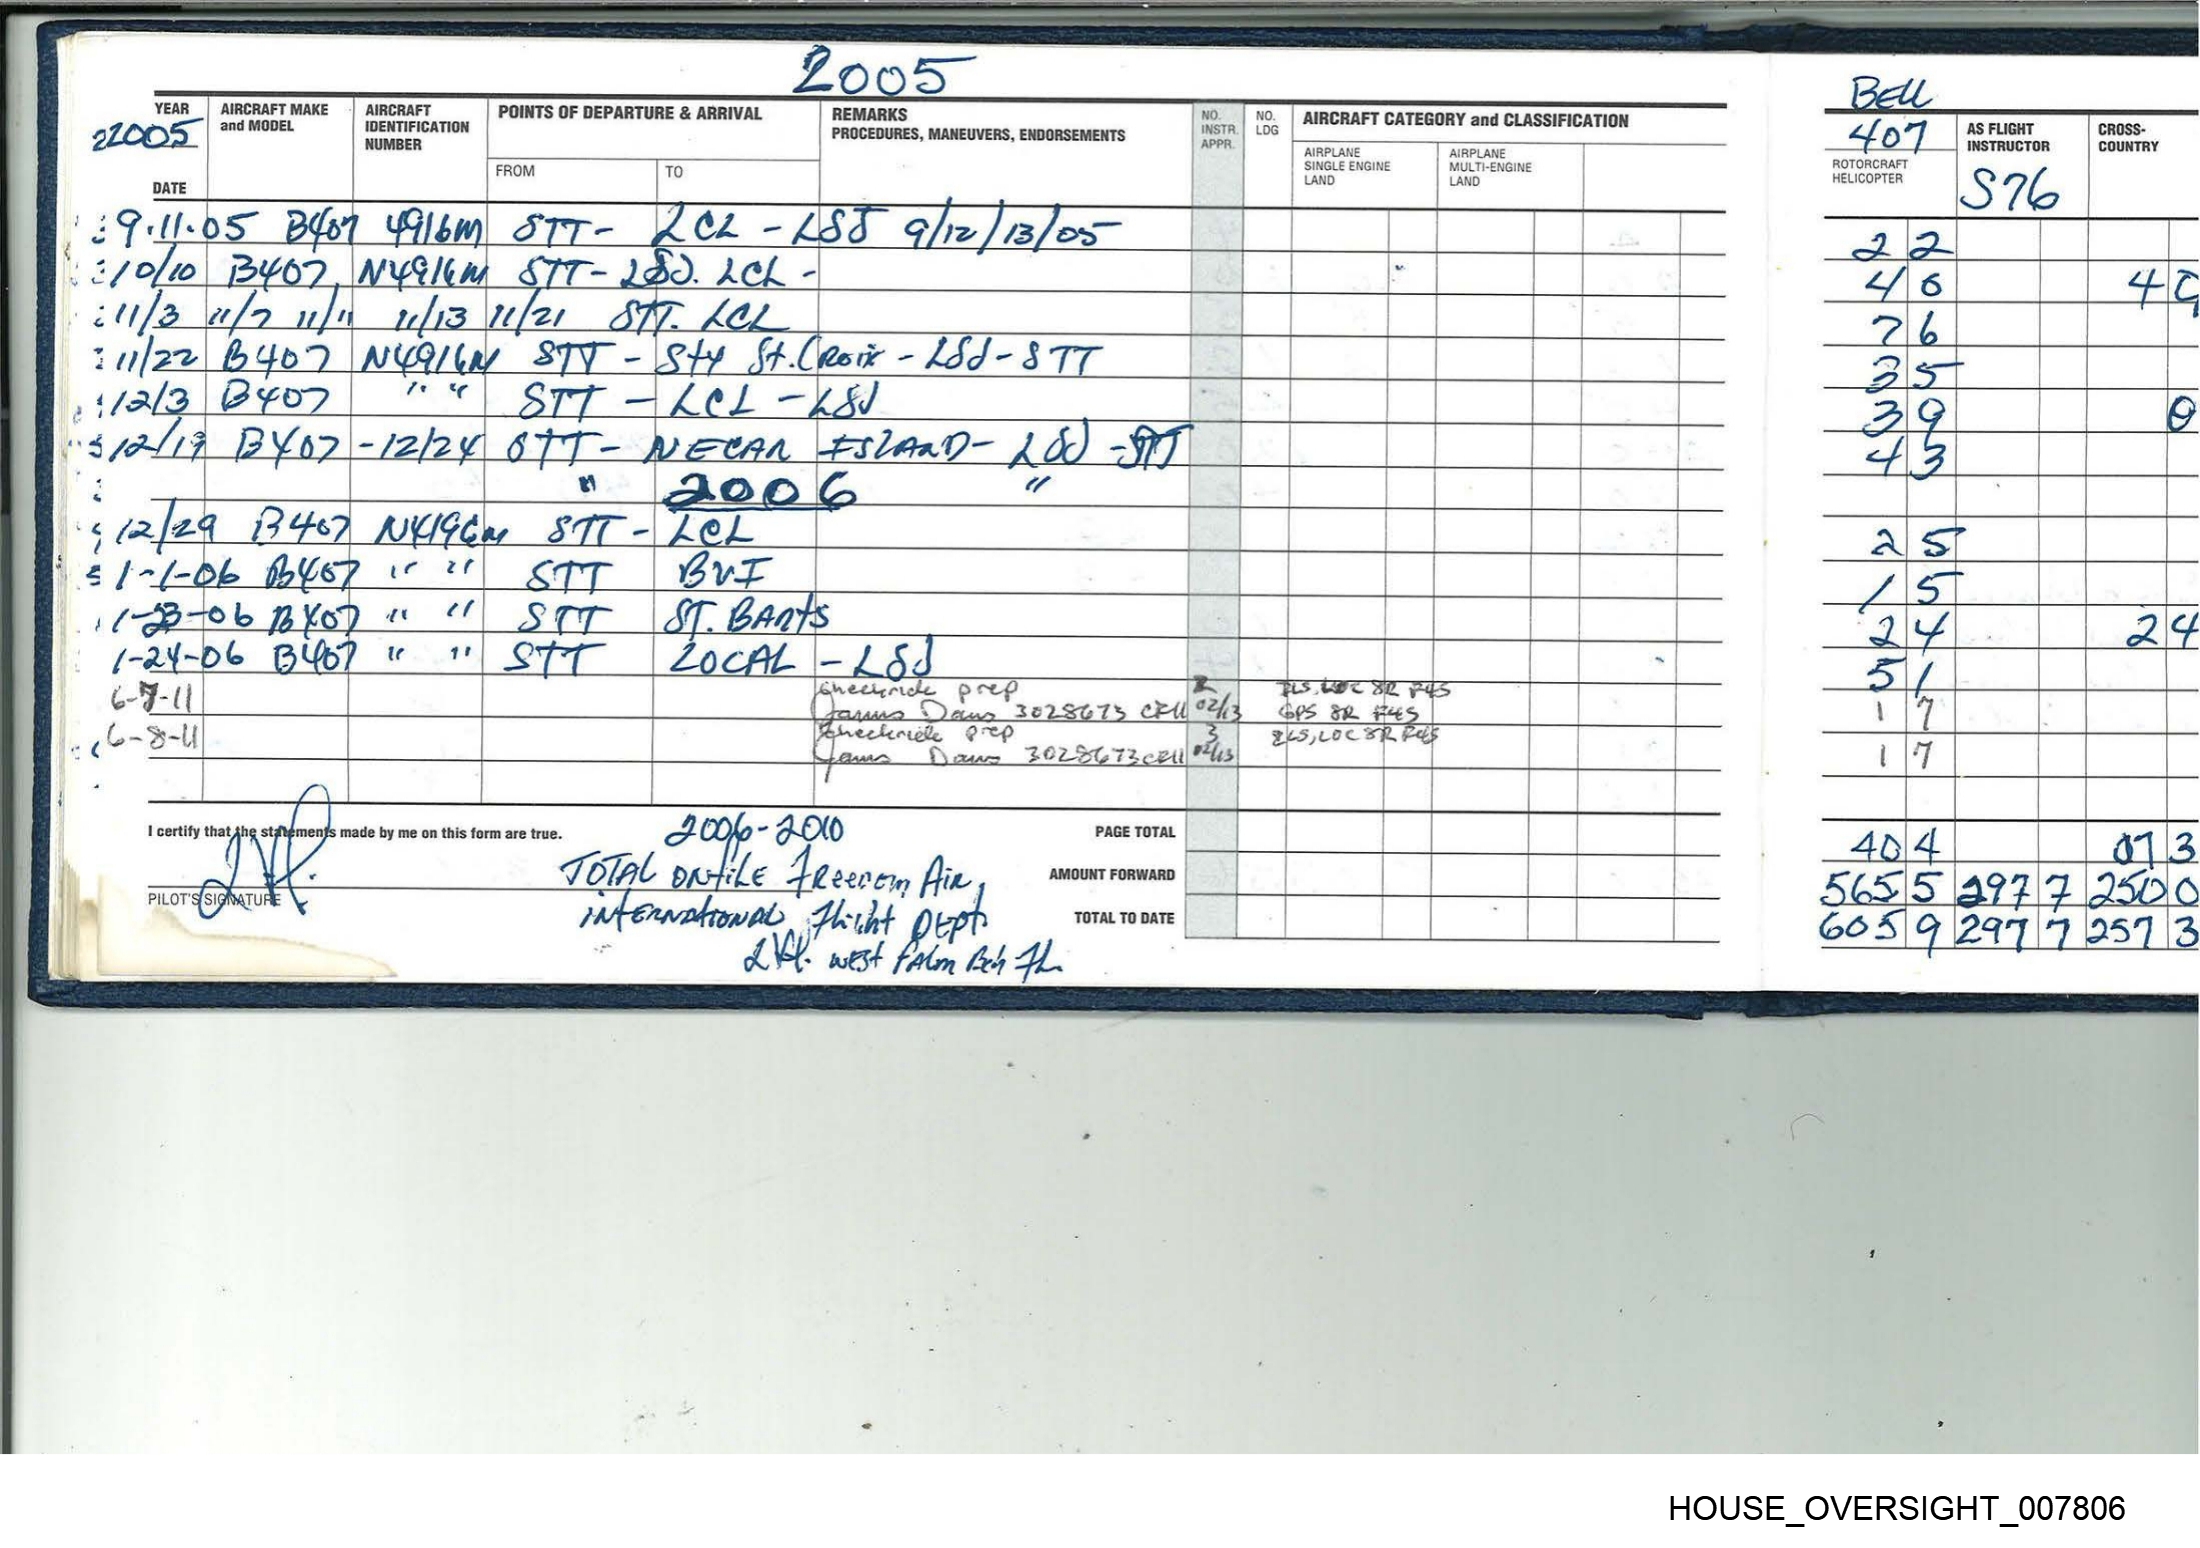 2005
YEAR AIRCRAFT MAKE and MODEL AIRCRAFT IDENTIFICATION NUMBER POINTS OF DEPARTURE & ARRIVAL REMARKS PROCEDURES, MANEUVERS, ENDORSEMENTS NO. INSTR. APPR. NO. LDG AIRCRAFT CATEGORY and CLASSIFICATION BELL 407 AS FLIGHT INSTRUCTOR CROSS-COUNTRY
2005 DATE FROM TO AIRPLANE SINGLE ENGINE LAND AIRPLANE MULTI-ENGINE LAND ROTORCRAFT HELICOPTER S76
9.11.05 B407 4916M STT- LCL - LSJ 9/12/13/05 2 2
10/10 B407 N4916M STT- LSJ. LCL - 4 0 4
11/3 11/7 11/11 11/13 11/21 STT. LCL 7 6
11/22 B407 N4916M STT - STX St. Croix - LSJ - STT 3 5
12/3 B407 " " STT - LCL - LSJ 3 9
12/19 B407 -12/24 STT - NECAR ISLAND - LSJ -STT 4 3
" 2006 "
12/29 B407 N4196M STT - LCL 2 5
1-1-06 B407 " " STT BVI 1 5
1-23-06 B407 " " STT ST. BARTS 2 4 2 4
1-24-06 B407 " " STT LOCAL - LSJ 5 1
6-7-11 checkride prep ILS, LOC 8R F45
3028673 CFII 02/13 GPS 8R F45 1 7
6-8-11 checkride prep 3 ILS, LOC 8R F45
3028673 CFII 02/13 1 7
I certify that the statements made by me on this form are true. 2006-2010 PAGE TOTAL 40 4 07 3
TOTAL ON FILE FREEDOM AIR, AMOUNT FORWARD 565 5 297 7 250 0
PILOT'S SIGNATURE INTERNATIONAL Flight DEPT. TOTAL TO DATE 605 9 297 7 257 3
WEST PALM Bch FL.
HOUSE_OVERSIGHT_007806